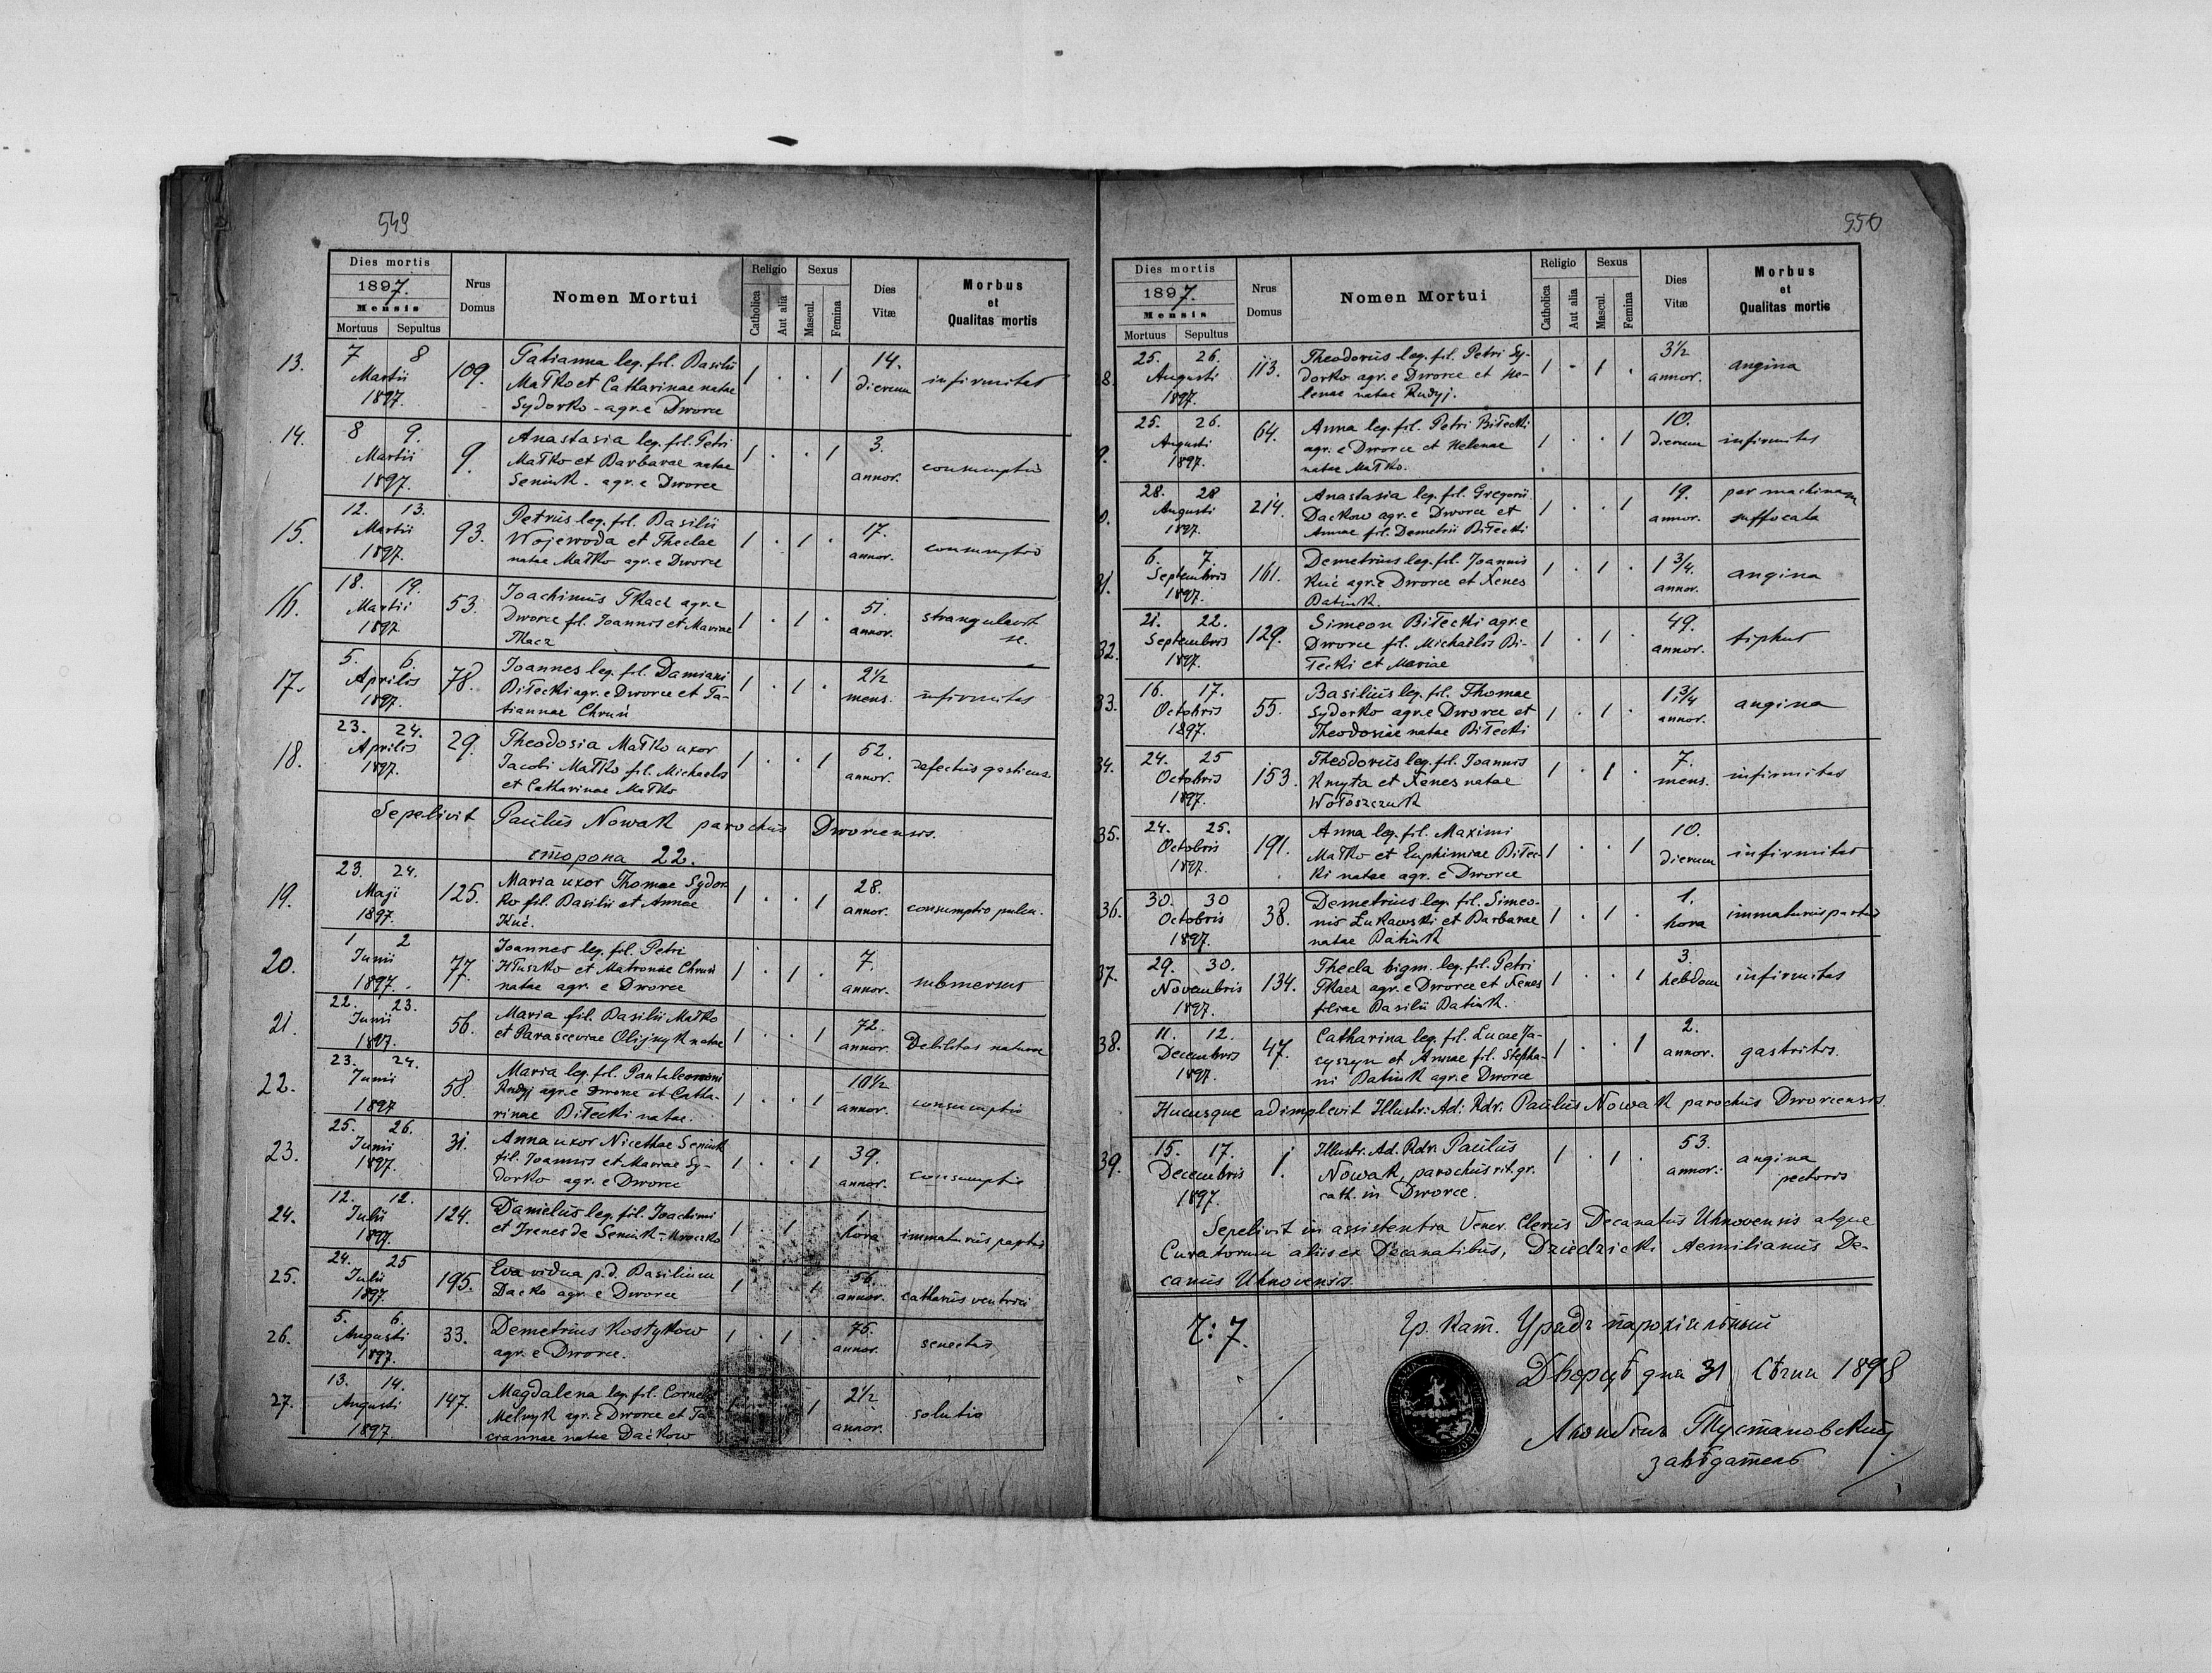 549
Dies mortis
1897.
Mensis
Mortuus Sepultus
Nrus Domus
Nomen Mortui
Religio
Catholica
Aut alia
Sexus
Mascul.
Femina
Dies Vitæ
Morbus et Qualitas mortis
13. 7 8 109. Tatianna leg. fil. Basilii 1 . . 1 14.
Martii Małko et Catharinae natae dierum infirmitas
1897. Sydorko - agr. e Dworce
14. 8 9. 9. Anastasia leg. fil. Petri 1 . . 1 3.
Martii Małko et Barbarae natae annor. consumptio
1897. Seniuk - agr. e Dworce
15. 12. 13. 93. Petrus leg. fil. Basilii 1 . 1 . 17.
Martii Wojewoda et Theclae annor. consumptio
1897. natae Małko agr. e Dworce
16. 18. 19. 53. Joachimus Tkacz agr. e 1 . 1 . 51.
Martii Dworce fil. Joannis et Mariae annor. strangulavit
1897 Tkacz se.
17. 5. 6. 78. Joannes leg. fil. Damiani 1 . 1 . 2½
Aprilis Biłecki agr. e Dworce et Ta- mens. infirmitas
1897. tiannae Chruń
18. 23. 24. 29. Theodosia Małko uxor 1 . . 1 52.
Aprilis Jacobi Małko fil. Michaelis annor. defectus
1897. et Catharinae Małko
Sepelivit Paulus Nowak parochus Dworcensis.
сторона 22.
19. 23. 24. 125. Maria uxor Thomae Sydor- 1 . . 1 28.
Maji ko fil. Basilii et Annae annor. consumptio pulm.
1897. Kuć.
20. 1 2 77. Joannes leg. fil. Petri 1 . 1 . 7.
Junii Hłuszko et Matronae Chruń annor. submersus
1897. natae agr. e Dworce
21. 22. 23. 56. Maria fil. Basilii Małko 1 . . 1 72.
Junii et Parasceviae Olijnyk natae annor. Debilitas naturae
1897.
22. 23. 24. 58. Maria leg. fil. Pantaleimoni 1 . . 1 10½
Junii Rudyj agr. e Dworce et Catha- annor. consumptio
1897 rinae Biłecki natae.
23. 25. 26. 31. Anna uxor Nicethae Seniuk 1 . . 1 39.
Junii fil. Joannis et Mariae Sy- annor. consumptio
1897. dorko agr. e Dworce
24. 12. 12. 124. Danielus leg. fil. Joachimi 1 . 1 1
Julii et Irenes de Seniuk - hora immaturus partus
1897.
25. 24. 25 195. Eva vidua p. d. Basilium 1 . . 1 56.
Julii Dacko agr. e Dworce annor. catharus ventriculi
1897.
26. 5. 6. 33. Demetrius Kostykow 1 . 1 . 76.
Augusti agr. e Dworce. annor. senectus
1897.
27. 13. 14. 147. Magdalena leg. fil. Cornelii 1 2½
Augusti Melnyk agr. e Dworce et Ta- annor. solutio
1897. natae Daćkow
550
Dies mortis
1897.
Mensis
Mortuus Sepultus
Nrus Domus
Nomen Mortui
Religio
Catholica
Aut alia
Sexus
Mascul.
Femina
Dies Vitæ
Morbus et Qualitas mortis
8. 25. 26. 113. Theodorus leg. fil. Petri Sy- 1 . 1 . 3½
Augusti dorko agr. e Dworce et He- annor. angina
1897. lenae natae Rudyj.
25. 26. 64. Anna leg. fil. Petri Biłecki 1 . . 1 10.
Augusti agr. e Dworce et Helenae dierum infirmitas
1897. natae Małko.
28. 28 214. Anastasia leg. fil. Gregorii 1 . . 1 19. per machinam
Augusti Dackow agr. e Dworce et annor. suffocata
1897. Annae fil. Demetrii Biłecki
6. 7. 161. Demetrius leg. fil. Joannis 1 . 1 . 1¾
Septembris Kuć agr. e Dworce et Xenes annor. angina
1897. Batiuk.
32. 21. 22. 129. Simeon Biłecki agr. e 1 . 1 . 49.
Septembris Dworce fil. Michaelis Bi- annor. tiphus
1897. łecki et Mariae
33. 16. 17. 55. Basilius leg. fil. Thomae 1 . 1 . 1¾
Octobris Sydorko agr. e Dworce et annor. angina
1897. Theodosiae natae Biłecki
34. 24. 25 153. Theodorus leg. fil. Joannis 1 . 1 . 7.
Octobris Kmyta et Xenes natae mens. infirmitas
1897. Wołoszczuk
35. 24. 25. 191. Anna leg. fil. Maximi 1 . . 1 10.
Octobris Małko et Euphimiae Biłec- dierum infirmitas
1897. ki natae agr. e Dworce
36. 30. 30 38. Demetrius leg. fil. Simeo- 1 . 1 . 1.
Octobris nis Lukawski et Barbarae hora immaturus partus
1897. natae Batiuk
37. 29. 30. 134. Thecla bigm. leg. fil. Petri 1 . . 1 3.
Novembris Tkacz agr. e Dworce et Xenes hebdom infirmitas
1897. filiae Basilii Batiuk.
38. 11. 12. 47. Catharina leg. fil. Lucae Ja- 1 . . 1 2.
Decembris cyszyn et Annae fil. Stepha- annor. gastritis.
1897. ni Batiuk agr. e Dworce
Hucusque adimplevit Illustr. Ad: Rdr. Paulus Nowak parochus Dworcensis.
39. 15. 17. 1. Illustr. Ad. Rdr. Paulus 1 . 1 . 53.
Decembris Nowak, parochus rit. gr. annor. angina
1897. cath. in Dworce. pectoris
Sepelivit in assistentia Vener. Clerus Decanatus Uhnovensis atque
Curatorum aliis ex Decanatibus, Dziedzicki Aemilianus De-
canus Uhnovensis.
Ч: 7. Гр. кат. Урядъ парохіяльный
Дворцѣ дня 31 Сѣчня 1898
Тустановскій
завѣдатель